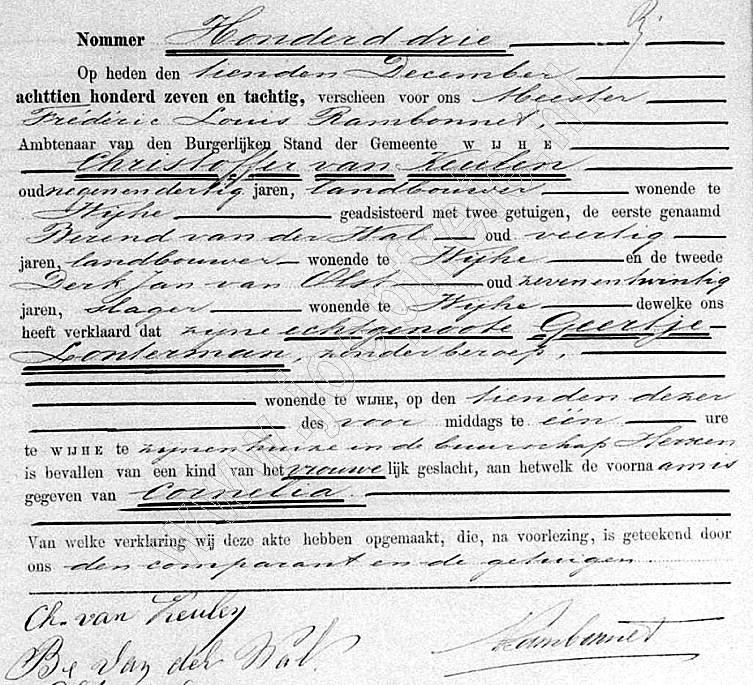 Nommer Honderd drie
Op heden den tienden December
achttien honderd zeven en tachtig, verscheen voor ons Meester
Fréderic Louis Rambonnet,
Ambtenaar van den Burgerlijken Stand der Gemeente WIJHE
Christoffer van Keulen
oud negenendertig jaren, landbouwer wonende te
Wijhe geadsisteerd met twee getuigen, de eerste genaamd
Berend van der Wal oud veertig
jaren, landbouwer wonende te Wijhe en de tweede
Derk Jan van Olst oud zevenentwintig
jaren, slager wonende te Wijhe dewelke ons
heeft verklaard dat zijne echtgenoote Geertje
Lonterman, zonder beroep,
wonende te WIJHE, op den tienden dezer
des voor middags te één ure
te WIJHE te zijnen huize in de buurschap Herxen
is bevallen van een kind van het vrouwelijk geslacht, aan hetwelk de voornaam is
gegeven van Cornelia.
Van welke verklaring wij deze akte hebben opgemaakt, die, na voorlezing, is geteekend door
ons den comparant en de getuigen
Ch. van Keulen
Be van der Wal.
Rambonnet